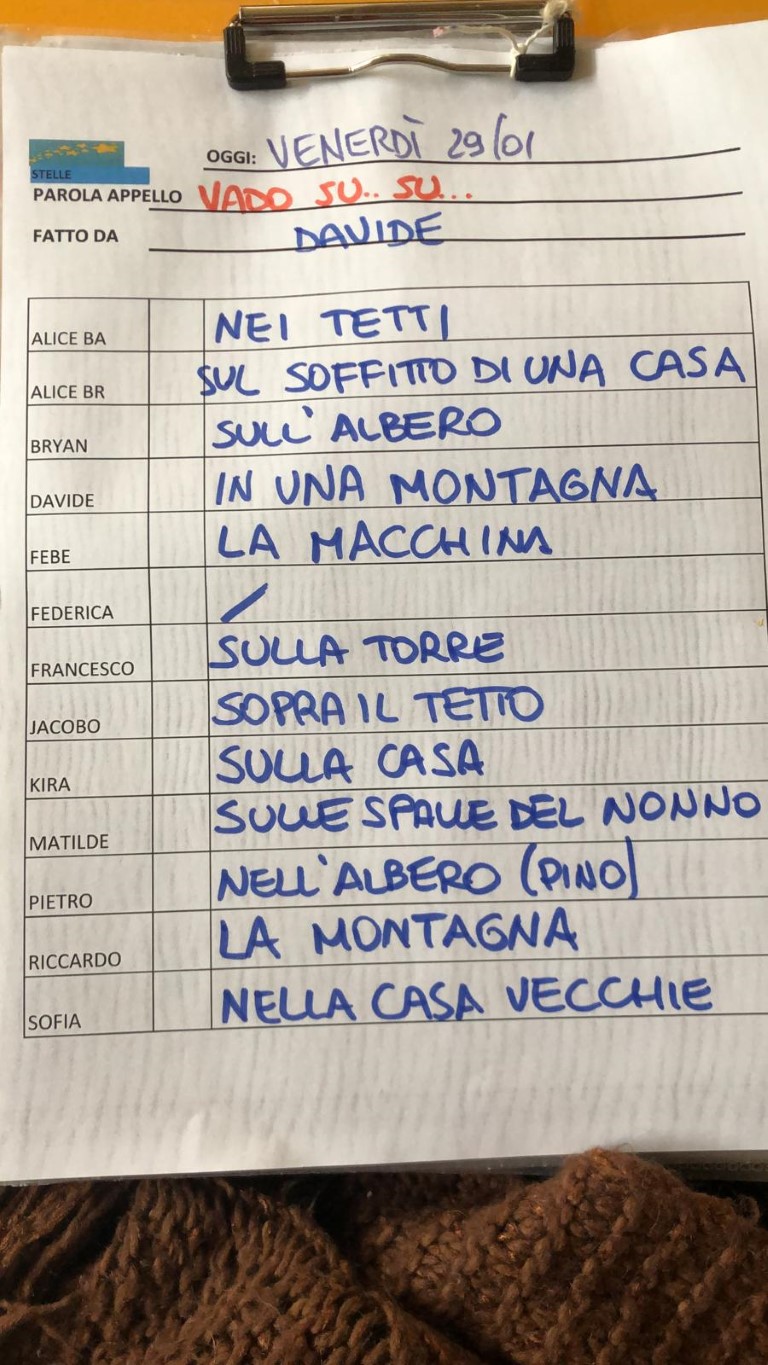 STELLE
OGGI: VENERDÌ 29/01
PAROLA APPELLO VADO SU.. SU...
FATTO DA DAVIDE
ALICE BA NEI TETTI
ALICE BR SUL SOFFITTO DI UNA CASA
BRYAN SULL'ALBERO
DAVIDE IN UNA MONTAGNA
FEBE LA MACCHINA
FEDERICA /
FRANCESCO SULLA TORRE
JACOBO SOPRA IL TETTO
KIRA SULLA CASA
MATILDE SULLE SPALLE DEL NONNO
PIETRO NELL'ALBERO (PINO)
RICCARDO LA MONTAGNA
SOFIA NELLA CASA VECCHIE